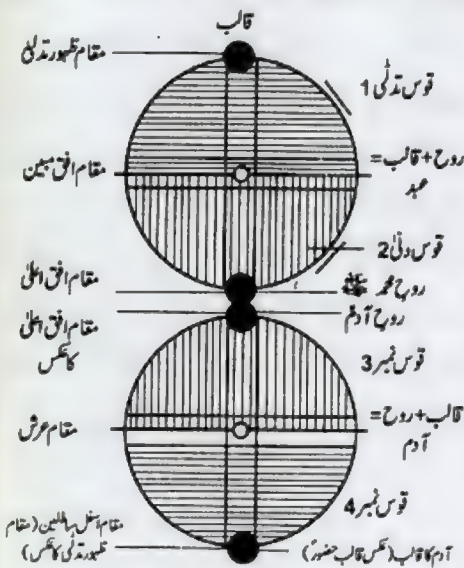 قالب
مقام ظہور تدلیٰ
قوس تدلّٰی 1
روح + قالب =
عبد
مقام افق مبین
قوس دنیٰ 2
مقام افق اعلیٰ
روح محمد ﷺ
روح آدم
مقام افق اعلیٰ
کا عکس
قوس نمبر 3
قالب + روح =
آدم
مقام عرش
قوس نمبر 4
مقام اسفل سافلین (مقام
ظہور تدلّٰی کا عکس)
آدم کا قالب (عکس قالب حضورؐ)